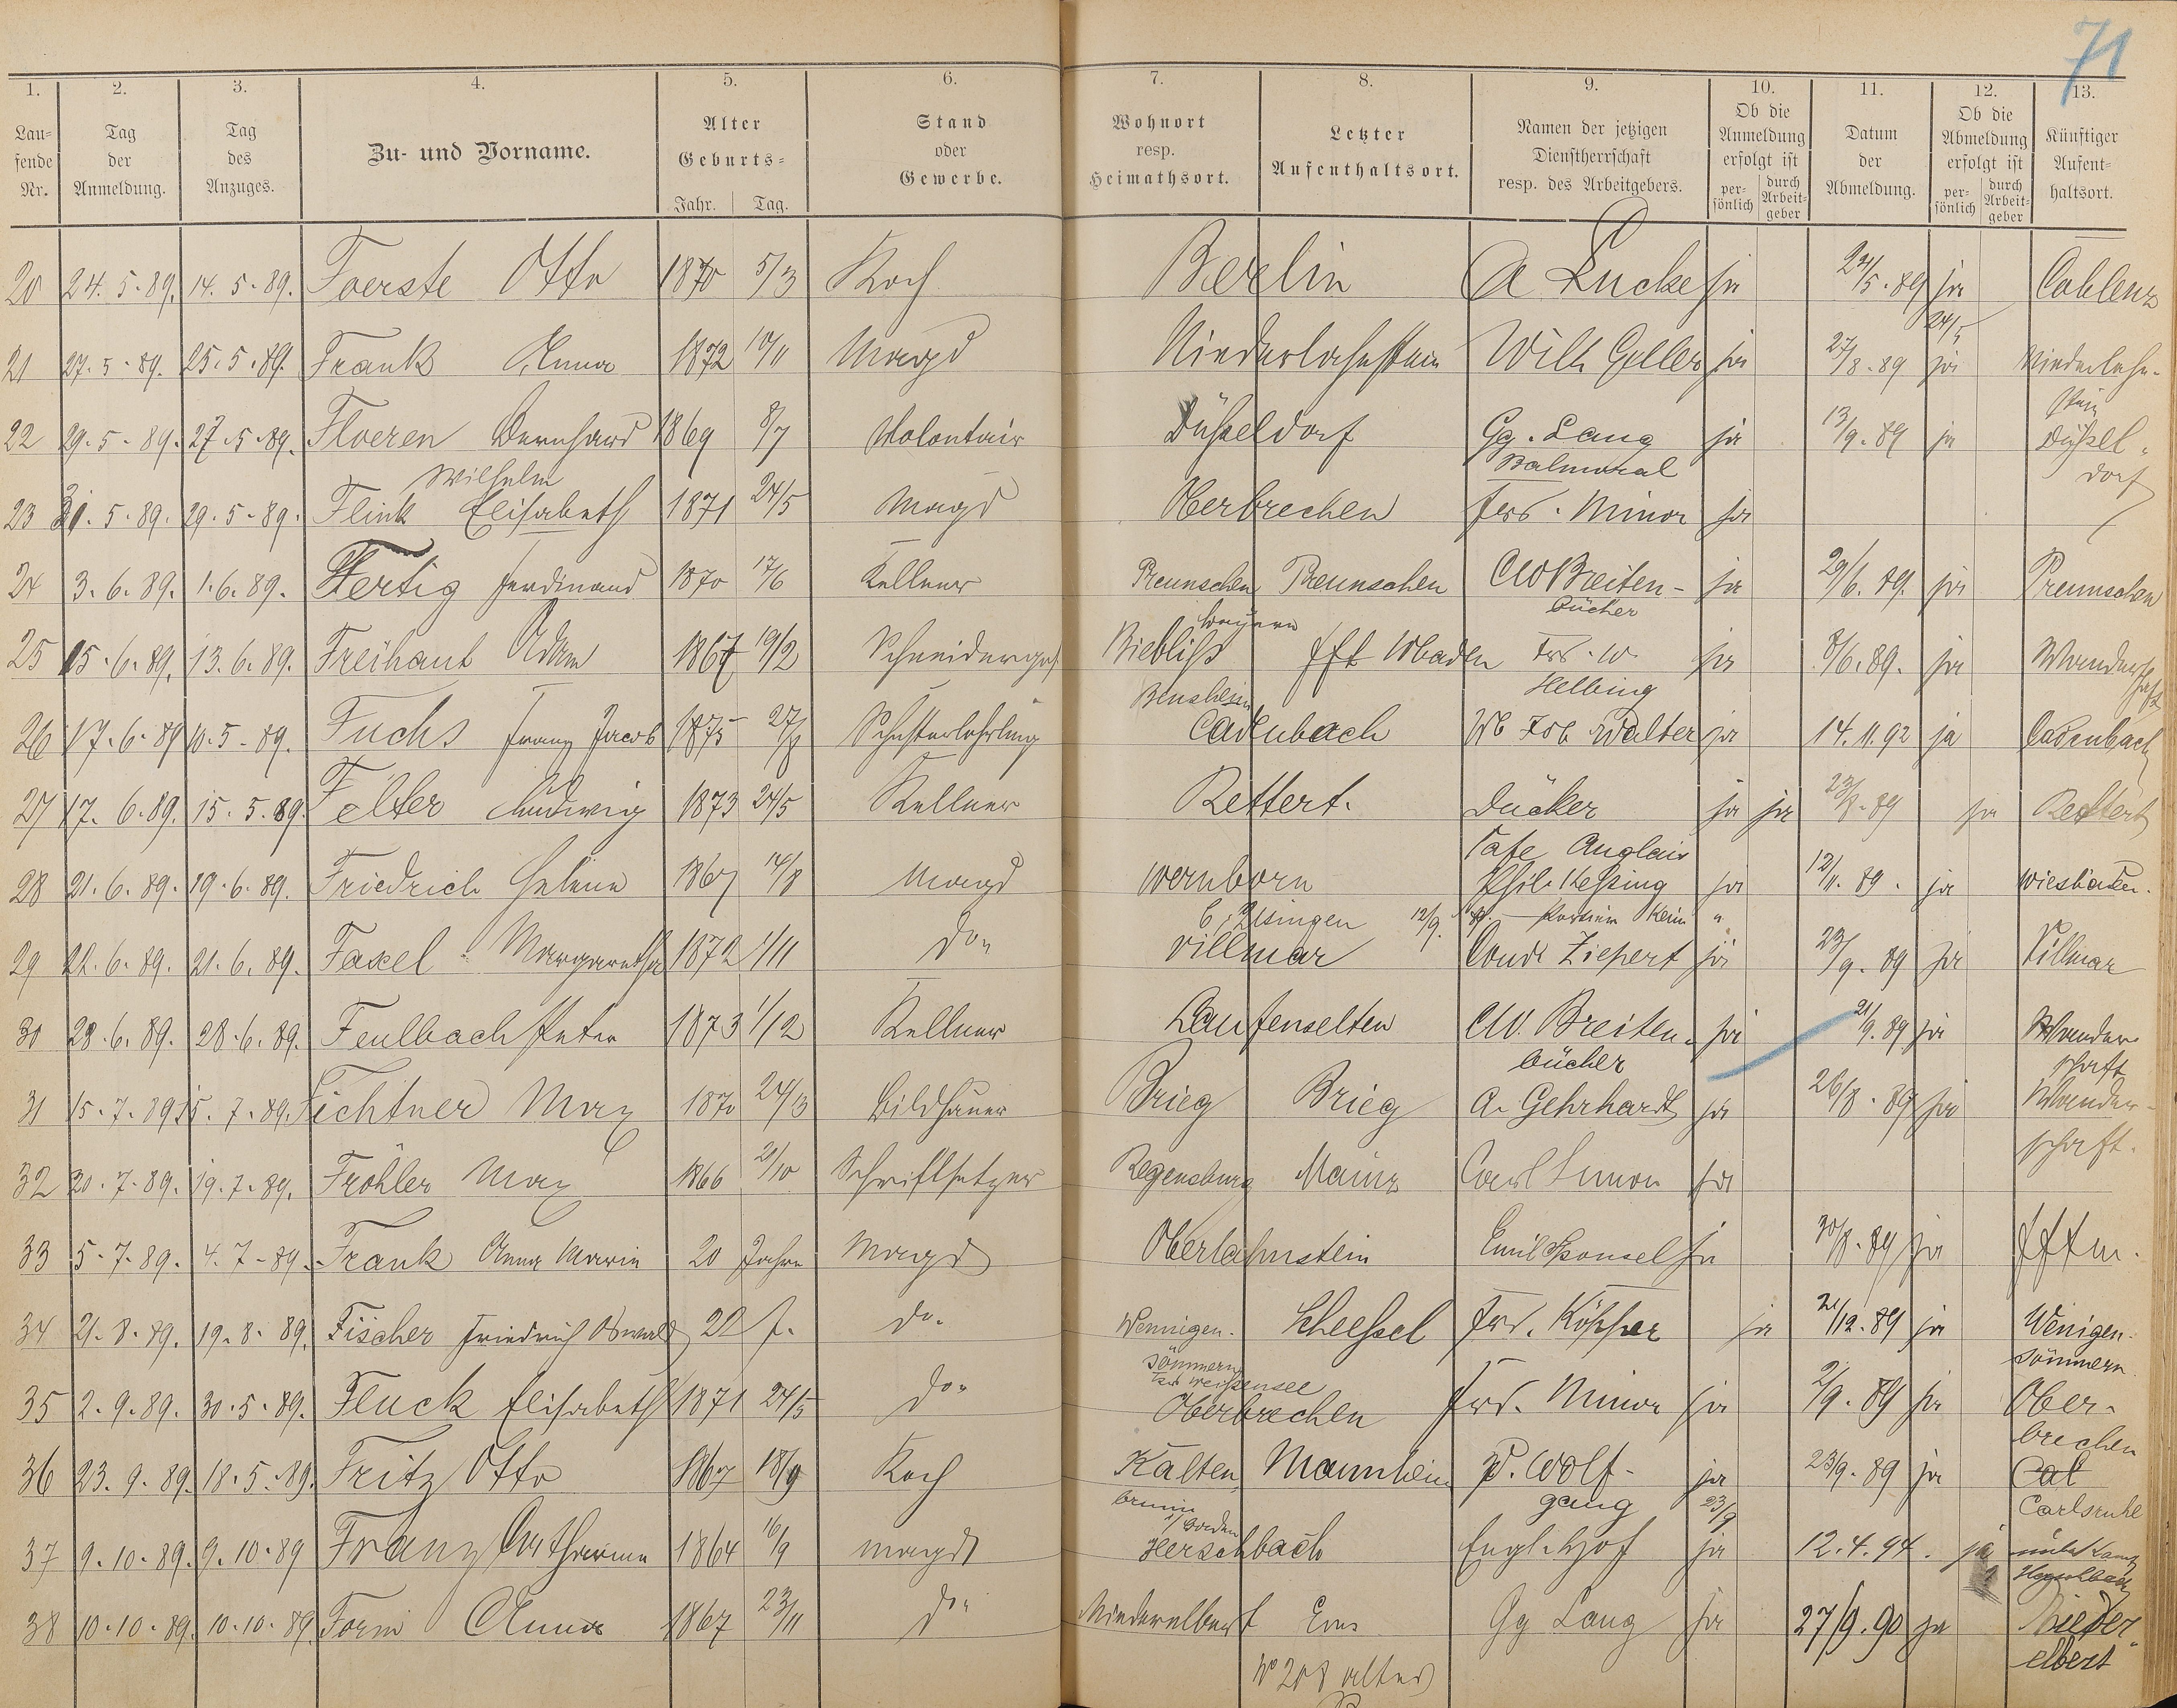 71
1. 2. 3. 4. 5. 6. 7. 8. 9. 10. 11. 12. 13.
Lau=fende Nr. Tag der Anmeldung. Tag des Anzuges. Zu- und Vorname. Alter Geburts= Jahr. Tag. Stand oder Gewerbe. Wohnort resp. Heimathsort. Letzter Aufenthaltsort. Namen der jetzigen Dienstherrschaft resp. des Arbeitgebers. Ob die Anmeldung erfolgt ist per-sönlich durch Arbeit-geber Datum der Abmeldung. Ob die Abmeldung erfolgt ist per-sönlich durch Arbeit-geber Künftiger Aufent=haltsort.
20 24. 5. 89. 14. 5. 89. Foerste Otto 1870 5/3 Koch Berlin A Lucke ja 24/5. 89 ja Coblenz
24/5
21 27. 5. 89. 25. 5. 89. Frank Anna 1872 10/11 Magd Niederlahnstein Wilh Geller ja 27/8. 89 ja Niederlahn-
stein
22 29. 5. 89. 27. 5. 89. Floeren Bernhard 1869 8/7 Volontair Düßeldorf Gg. Lang ja 13/9. 89 ja Düßel-
Wilhelm Balmoral dorf
23 31. 5. 89. 29. 5. 89. Flink Elisabeth 1871 24/5 Magd Oberbrechen Frd. Minor ja
24 3. 6. 89. 1. 6. 89. Fertig Ferdinand 1870 17/6 Kellner Preunschen Preunschen CW Breiten- ja 29/6. 89. ja Preunschen
Bayern bücher
25 15. 6. 89. 13. 6. 89. Freihaut Adam 1867 19/2 Schneiderges Bibliß fft Wbaden Frd. W. ja 8/6. 89. ja Wanderschaft
Bensheim Helbing
26 17. 6. 89 10. 5. 89. Fuchs Franz Jacob 1875 27/8 Schusterlehrling Cadenbach Wb Frd. Walter ja 14. 11. 92 ja Cadenbach
27 17. 6. 89. 15. 5. 89. Felter Ludwig 1873 24/5 Kellner Rettert. Däcker ja ja 23/8. 89 ja Rettert
Cafe Anglais
28 21. 6. 89. 19. 6. 89. Friedrich Helene 1867 14/8 Magd Wernborn Phil. Keßing ja 12/11. 89. ja Wiesbaden.
b. Usingen 12/9.
29 22. 6. 89. 21. 6. 89. Faxel Margaretha 1872 1/11 do Villmar Condi Ziepert ja 23/9. 89 ja Villmar
30 28. 6. 89. 28. 6. 89. Feulbach Peter 1873 1/12 Kellner Laufenselten CW. Breiten- ja 21/9. 89 ja Wander-
bücher schaft
31 15. 7. 89 15. 7. 89. Fichtner Max 1870 24/3 Bildhauer Brieg Brieg A. Gehrhardt ja 26/8. 89 ja Wander-
schaft.
32 20. 7. 89. 19. 7. 89. Fröhler Max 1866 21/10 Schriftsetzer Regensburg Mainz Carl Simon ja
33 5. 7. 89. 4. 7. 89. Frank Anna Maria 20 Jahre Magd Oberlahnstein Emil Sponsel ja 30/8. 89 ja fftm.
34 21. 8. 89. 19. 8. 89. Fischer Friedrich Oswald 22 J. do. Wennigen- Scheeßel Frd. Köpper ja 21/12. 89 ja Wenigen-
sömmern sömmern
Weißensee
35 2. 9. 89. 30. 5. 89. Fluck Elisabeth 1871 24/5 do Oberbrechen Frd. Minor ja 2/9. 89 ja Ober-
brechen
36 23. 9. 89. 18. 5. 89. Fritz Otto 1867 18/9 Koch Kalten, Mannheim P. Wolf- ja 23/9. 89 ja Cat
brunn gang 23/9 Carlsruhe
i/ Baden
37 9. 10. 89. 9. 10. 89 Franz Catharina 1864 16/9 Magd Herschbach Engl. Hof ja 12. 4. 94. ja
Herschbach
38 10. 10. 89. 10. 10. 89. Form Anna 1867 23/11 do Niederelbert Ems Gg Lang ja 27/9. 90 ja Nieder-
elbert
No 208 alter